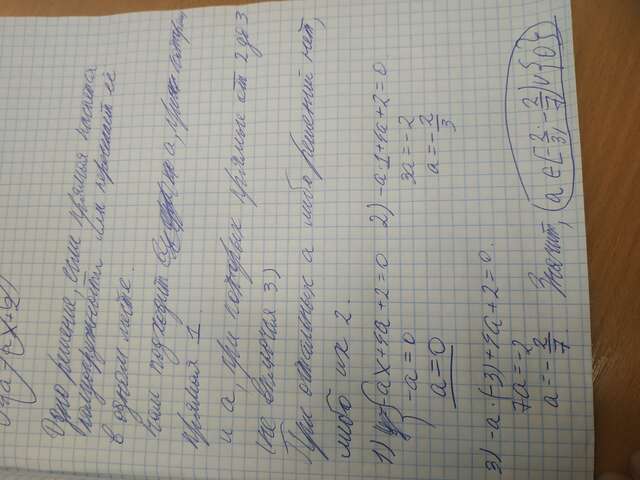 Одно решение, если прямая касается
полуокружности или пересекает её
в одном месте.
Нам подходит а, при котором
прямая 1
и а, при которых прямые от 2 до 3
(не включая 3)
При остальных а либо решений нет,
либо их 2.
1) -ax+4a+2=0
-a=0
a=0
2) -a·1+4a+2=0
3a=-2
a=-2/3
3) -a·(-3)+4a+2=0.
7a=-2
a=-2/7
Значит, a∈[-2/3;-2/7)∪{0}